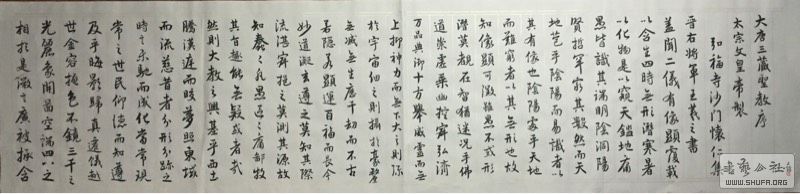 大唐三藏聖教序
太宗文皇帝製
弘福寺沙門懷仁集
晉右將軍王羲之書
蓋聞二儀有像顯覆載
以含生四時無形潛寒暑
以化物是以窺天鑑地庸
愚皆識其端明陰洞陽
賢哲罕窮其數然而天
地苞乎陰陽而易識者以
其有像也陰陽處乎天地
而難窮者以其無形也故
知像顯可徵雖愚不惑形
潛莫覩在智猶迷況乎佛
道崇虛乘幽控寂弘濟
萬品典御十方舉威靈而無
上抑神力而無下大之則彌
於宇宙細之則攝於毫釐
無滅無生歷千劫而不古
若隱若顯運百福而長今
妙道凝玄遵之莫知其際
法流湛寂挹之莫測其源故
知蠢蠢凡愚區區庸鄙投
其旨趣能無疑或者哉
然則大教之興基乎西土
騰漢庭而皎夢照東域
而流慈昔者分形分跡之
時言未馳而成化當常現
常之世民仰德而知遵
及乎晦影歸真遷儀越
世金容掩色不鏡三千之
光麗象開圖空端四八之
相於是微言廣被拯含
WWW.SHUFA.ORG